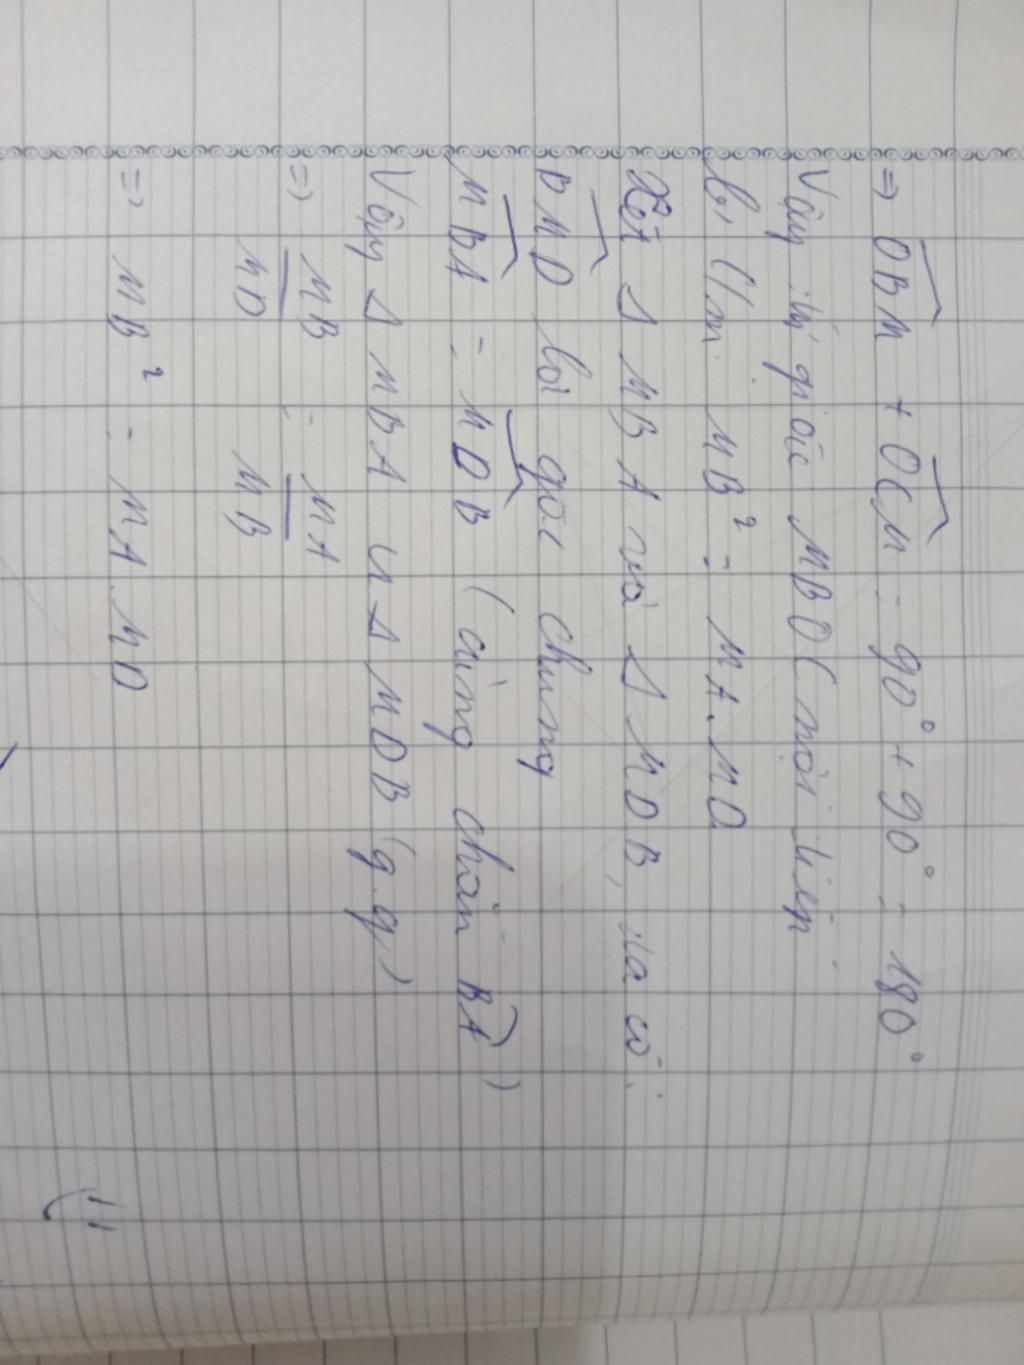 ⇒ OBM + OCM = 90° + 90° = 180°
Vậy tứ giác MBOC nội tiếp
b, C/m: MB² = MA.MD
Xét Δ MBA và Δ MDB, ta có:
BMD là góc chung
MBA = MDB (cùng chắn BA)
Vậy Δ MBA ∽ Δ MDB (g.g)
⇒ MB/MD = MA/MB
⇒ MB² = MA.MD